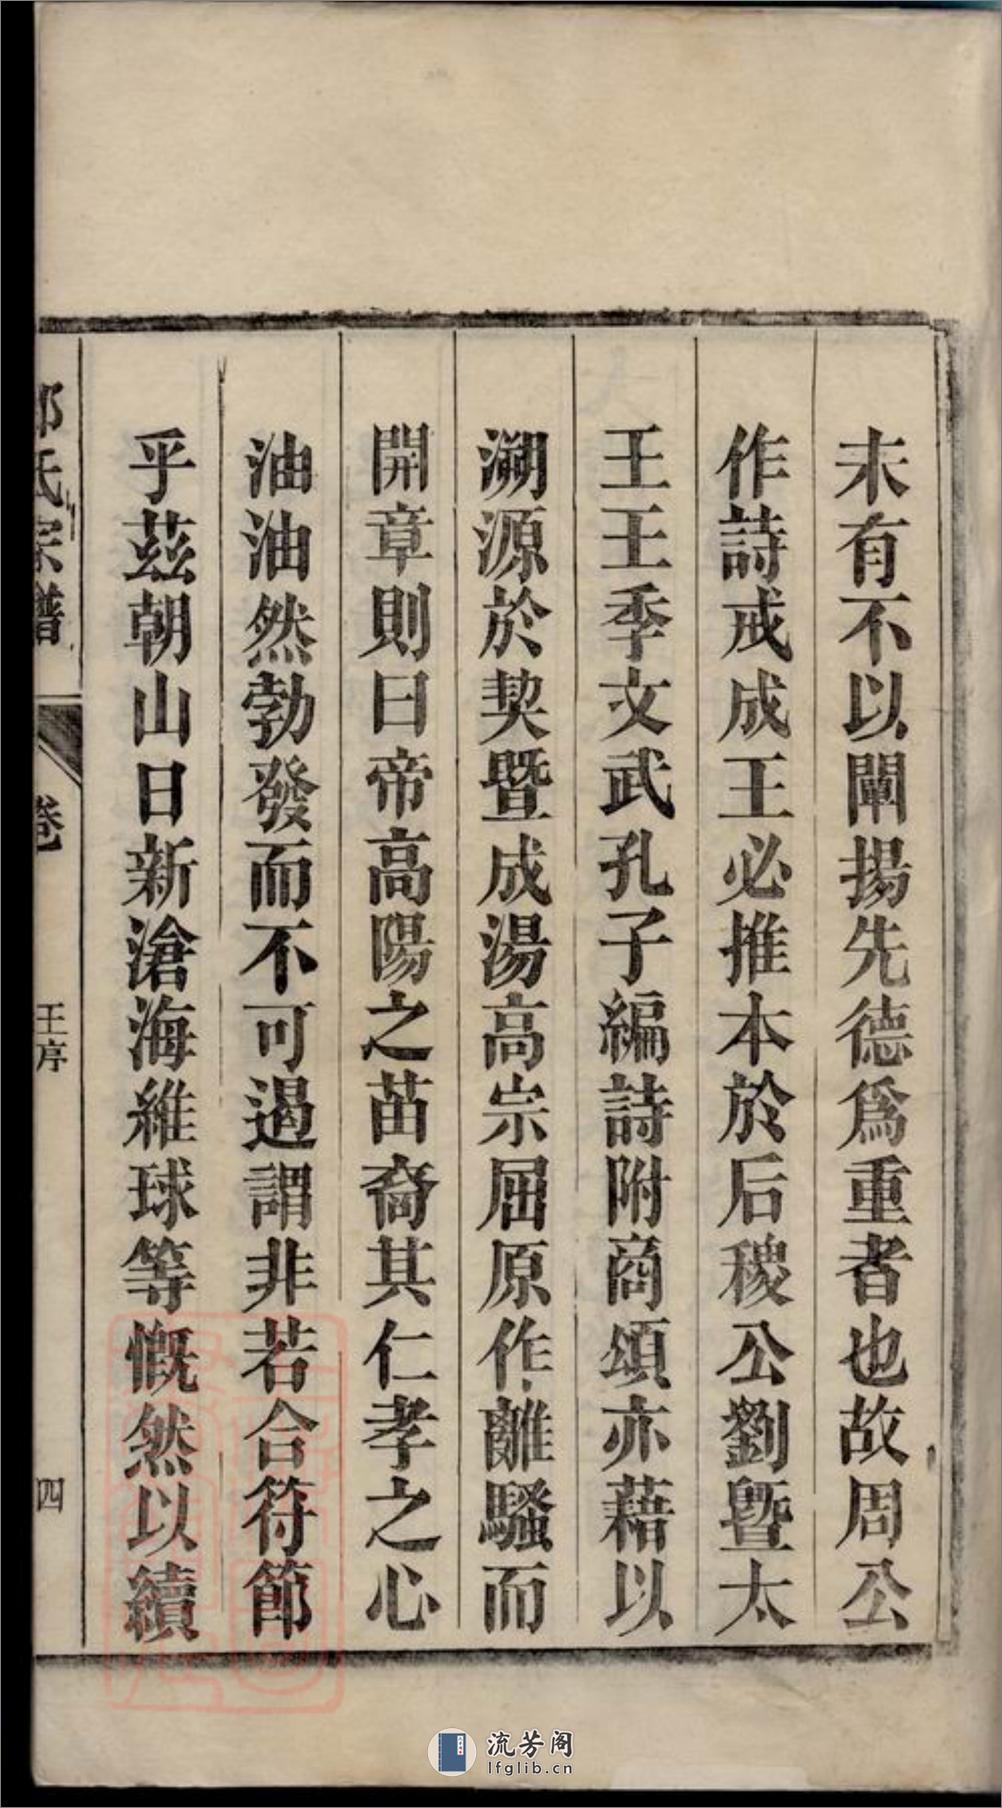 未有不以闡揚先德爲重者也故周公
作詩戒成王必推本於后稷公劉曁太
王王季文武孔子編詩附商頌亦藉以
溯源於契曁成湯高宗屈原作離騷而
開章則曰帝高陽之苗裔其仁孝之心
油油然勃發而不可遏謂非若合符節
乎茲朝山日新滄海維球等慨然以續
氏宗譜
卷
王序
四
流芳阁
lfglib.cn